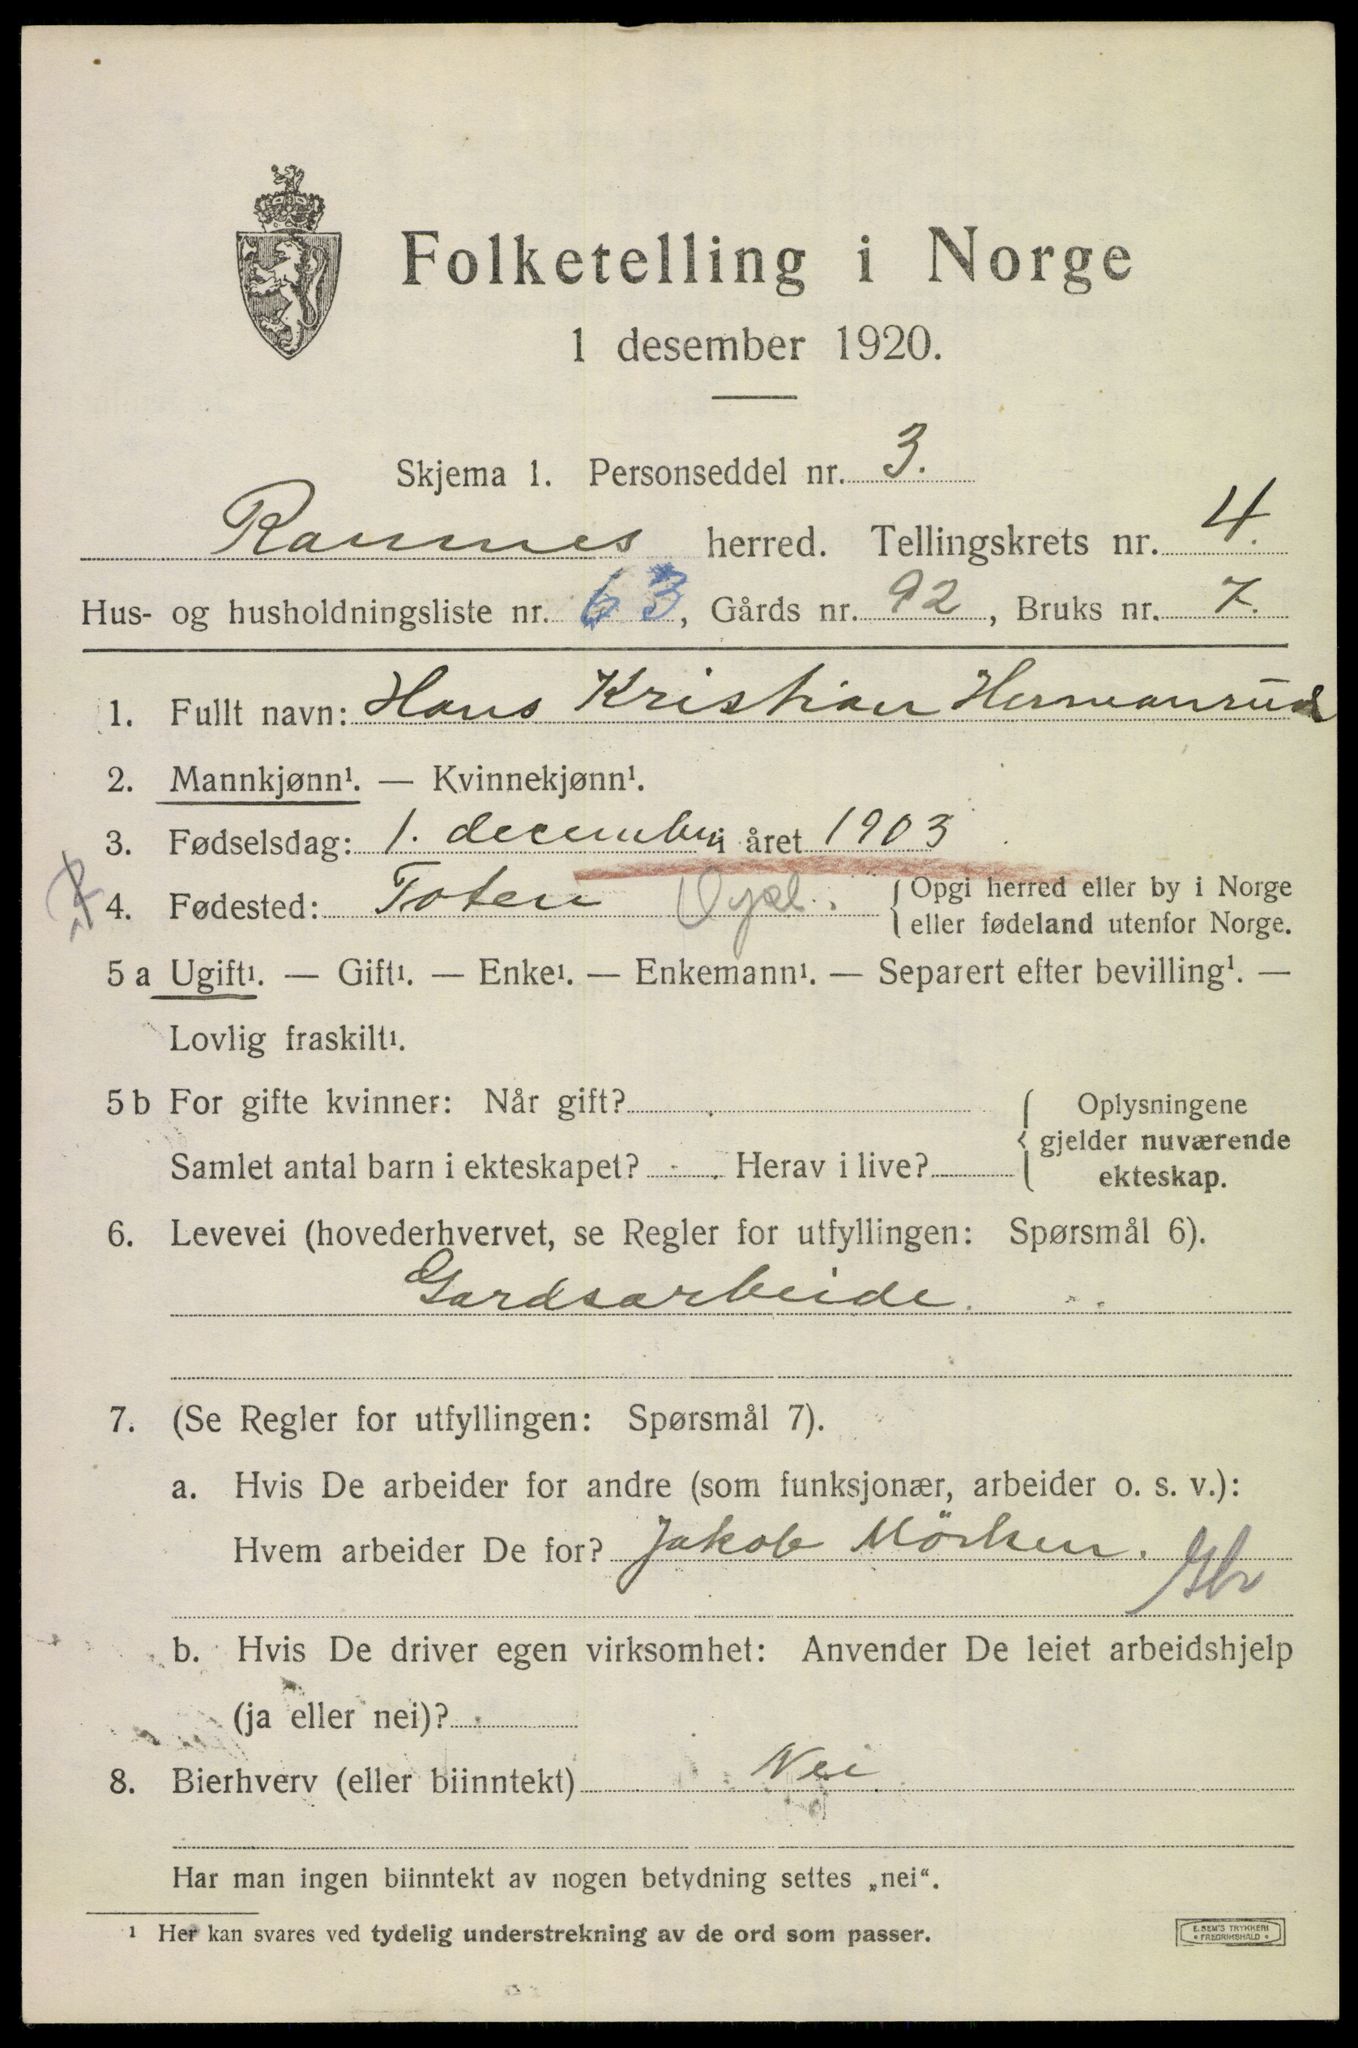 Folketelling i Norge
1 desember 1920.
Skjema 1. Personseddel nr. 3.
Ramnes herred. Tellingskrets nr. 4.
Hus- og husholdningsliste nr. 63, Gårds nr. 92, Bruks nr. 7.
1. Fullt navn: Hans Kristian Hermanrud
2. Mannkjønn¹. — Kvinnekjønn¹.
3. Fødselsdag: 1. december i året 1903
4. Fødested: Toten { Opgi herred eller by i Norge
eller fødeland utenfor Norge.
5 a Ugift¹. — Gift¹. — Enke¹. — Enkemann¹. — Separert efter bevilling¹. —
Lovlig fraskilt¹.
5 b For gifte kvinner: Når gift? { Oplysningene
gjelder nuværende
Samlet antal barn i ekteskapet? Herav i live?
ekteskap.
6. Levevei (hovederhvervet, se Regler for utfyllingen: Spørsmål 6).
Gardsarbeide.
7. (Se Regler for utfyllingen: Spørsmål 7).
a. Hvis De arbeider for andre (som funksjonær, arbeider o. s. v.):
Hvem arbeider De for? Jakob Mörken.
Gbr
b. Hvis De driver egen virksomhet: Anvender De leiet arbeidshjelp
(ja eller nei)?
8. Bierhverv (eller biinntekt) Nei
Har man ingen biinntekt av nogen betydning settes „nei“.
¹ Her kan svares ved tydelig understrekning av de ord som passer.
E. SEM'S TRYKKERI
• FREDRIKSHALD •